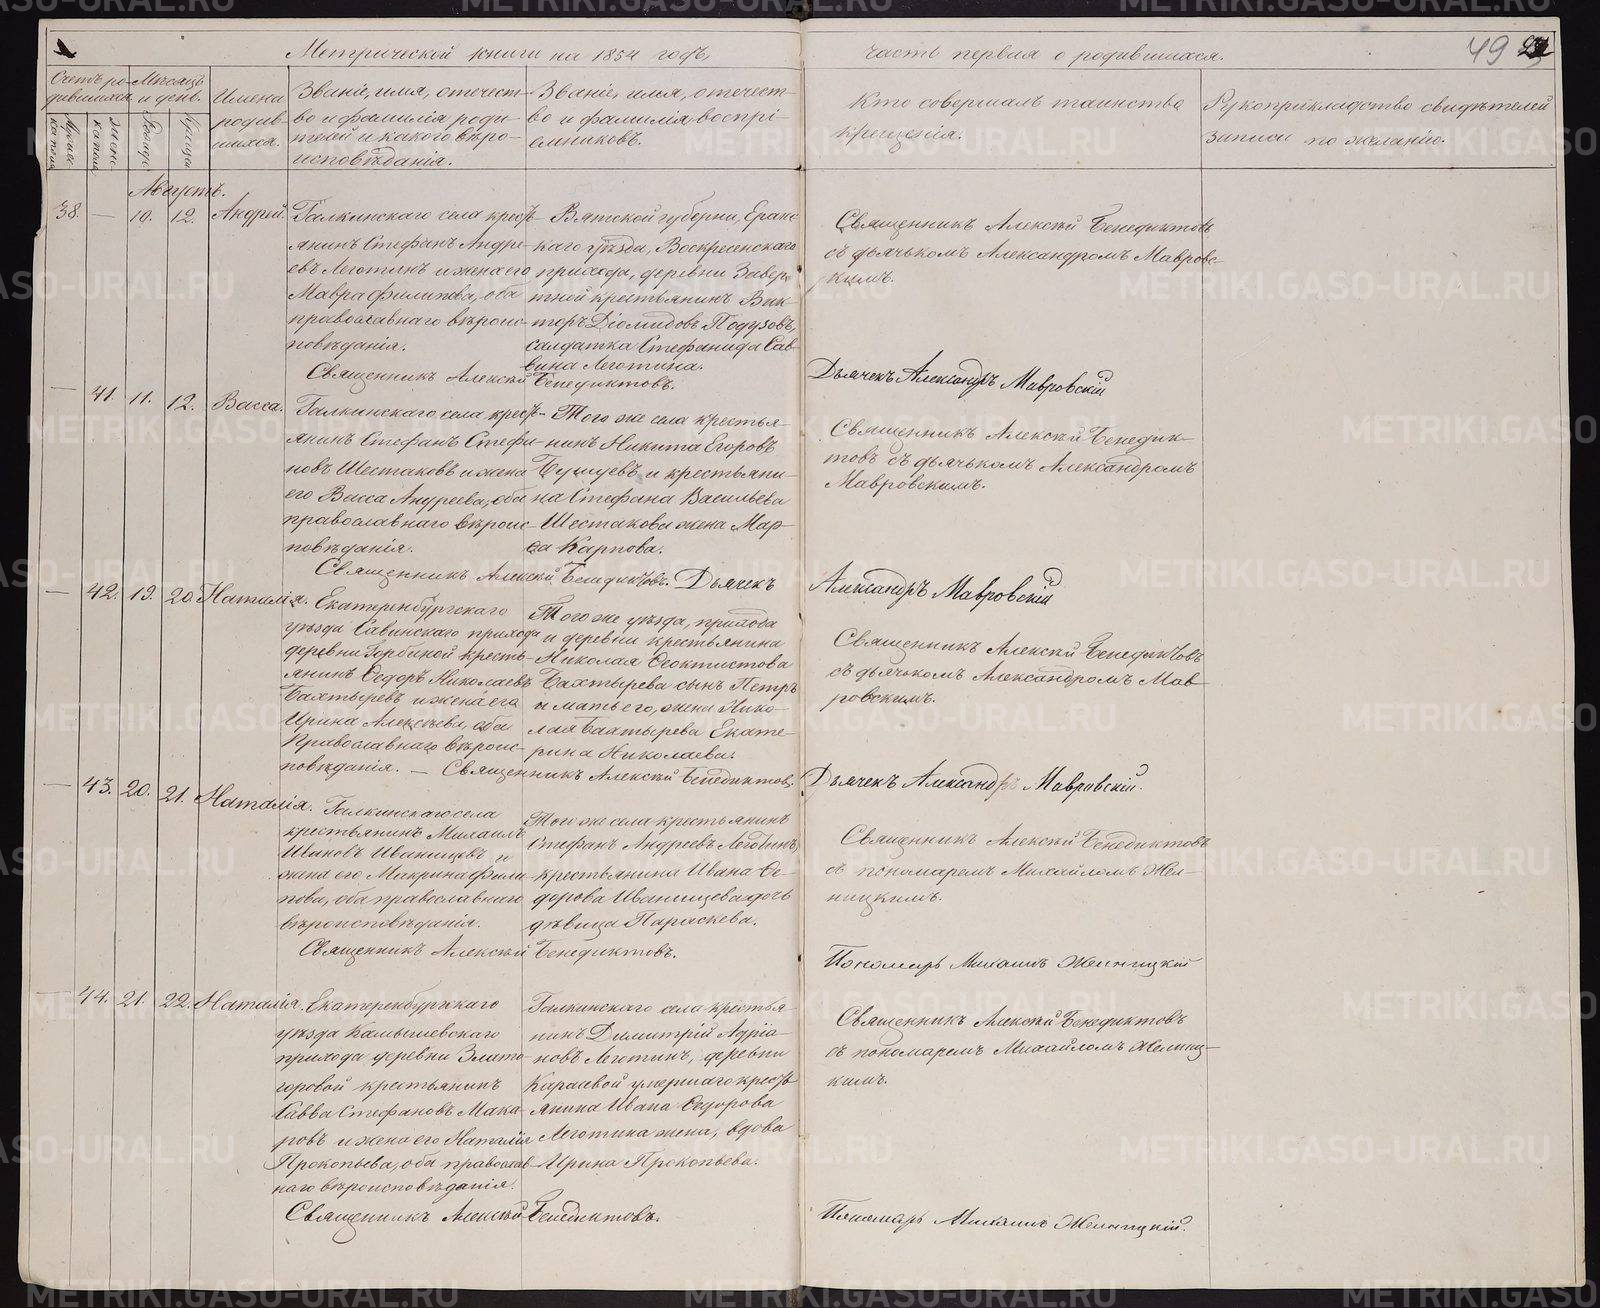 Метрической книги на 1854 годъ,
часть первая о родившихся.
49
Счетъ ро-
дившихся.
Мѣсяцъ
и день.
Имена
родив-
шихся.
Званіе, имя, отечест-
во и фамилія роди-
телей и какого вѣро-
исповѣданія.
Званіе, имя, отечест-
во и фамилія воспрі-
емниковъ.
Кто совершалъ таинства
крещенія.
Рукоприкладство свидѣтелей
записи по желанію.
Августъ.
38. — 10. 12. Андрей.
Галкинскаго села кресть-
янинъ Стефанъ Андре-
евъ Леготинъ и жена его
Мавра Филипова, оба
православнаго вѣроис-
повѣданія.
Вятской губерніи, Яранс
каго уѣзда, Воскресенскаго
прихода, деревни
крестьянинъ Вик-
торъ Діомидовъ Подузовъ,
салдатка Стефанида Сав-
вина Леготина.
Священникъ Алексѣй Бенедиктовъ
съ дьячькомъ Александромъ Мавровс-
кимъ.
Священникъ Алексѣй Бенедиктовъ.
Дьячекъ Александръ Мавровскій
— 41. 11. 12. Васса.
Галкинскаго села кресть-
янинъ Стефанъ Стефа-
новъ Шестаковъ и жена
его Васса Андреева, оба
православнаго вѣроис-
повѣданія.
Того же села крестья-
нинъ Никита Егоровъ
и крестьяни-
на Стефана Васильева
Шестакова жена Мар-
ѳа Карпова.
Священникъ Алексѣй Бенедик-
товъ съ дьячькомъ Александромъ
Мавровскимъ.
Священникъ Алексѣй Бенедиктовъ. Дьячекъ Александръ Мавровскій
— 42. 19. 20. Наталія.
Екатеринбургскаго
уѣзда Савинскаго прихода
деревни Горбуной кресть-
янинъ Ѳедоръ Николаевъ
Бахтыревъ и жена его
Ирина Алексѣева, оба
Православнаго вѣроис-
повѣданія. —
Того же уѣзда, прихода
и деревни крестьянина
Николая Ѳеоктистова
Бахтырева сынъ Петръ
и мать его, жена Нико-
лая Бахтырева Екате-
рина Николаева.
Священникъ Алексѣй Бенедиктовъ
съ дьячькомъ Александромъ Мав-
ровскимъ.
Священникъ Алексѣй Бенедиктовъ. Дьячекъ Александръ Мавровскій.
— 43. 20. 21. Наталія.
Галкинскаго села
крестьянинъ Михаилъ
Ивановъ Иванищевъ и
жена его Макрина Фили-
пова, оба православнаго
вѣроисповѣданія.
Того же села крестьянинъ
Стефанъ Андреевъ Леготинъ,
крестьянина Ивана Ѳе-
дорова Иванищева дочь
дѣвица Параскева.
Священникъ Алексѣй Бенедиктовъ
съ пономаремъ Михайломъ Жел-
ницкимъ.
Священникъ Алексѣй Бенедиктовъ.
Пономарь Михаилъ Желницкій
— 44. 21. 22. Наталія.
Екатеринбургскаго
уѣзда Камышевскаго
прихода деревни Злато
горовой крестьянинъ
Савва Стефановъ Мака
ровъ и жена его Наталія
Прокопьева, оба православ-
наго вѣроисповѣданія.
Галкинскаго села крестья-
нинъ Димитрій Адріа-
новъ Леготинъ, деревни
Карасевой умершаго кресть
янина Ивана Ѳедорова
Леготина жена, вдова
Ирина Прокопьева.
Священникъ Алексѣй Бенедиктовъ
съ пономаремъ Михайломъ Желниц-
кимъ.
Священникъ Алексѣй Бенедиктовъ.
Пономарь Михаилъ Желницкій.
METRIKI.GASO-URAL.RU